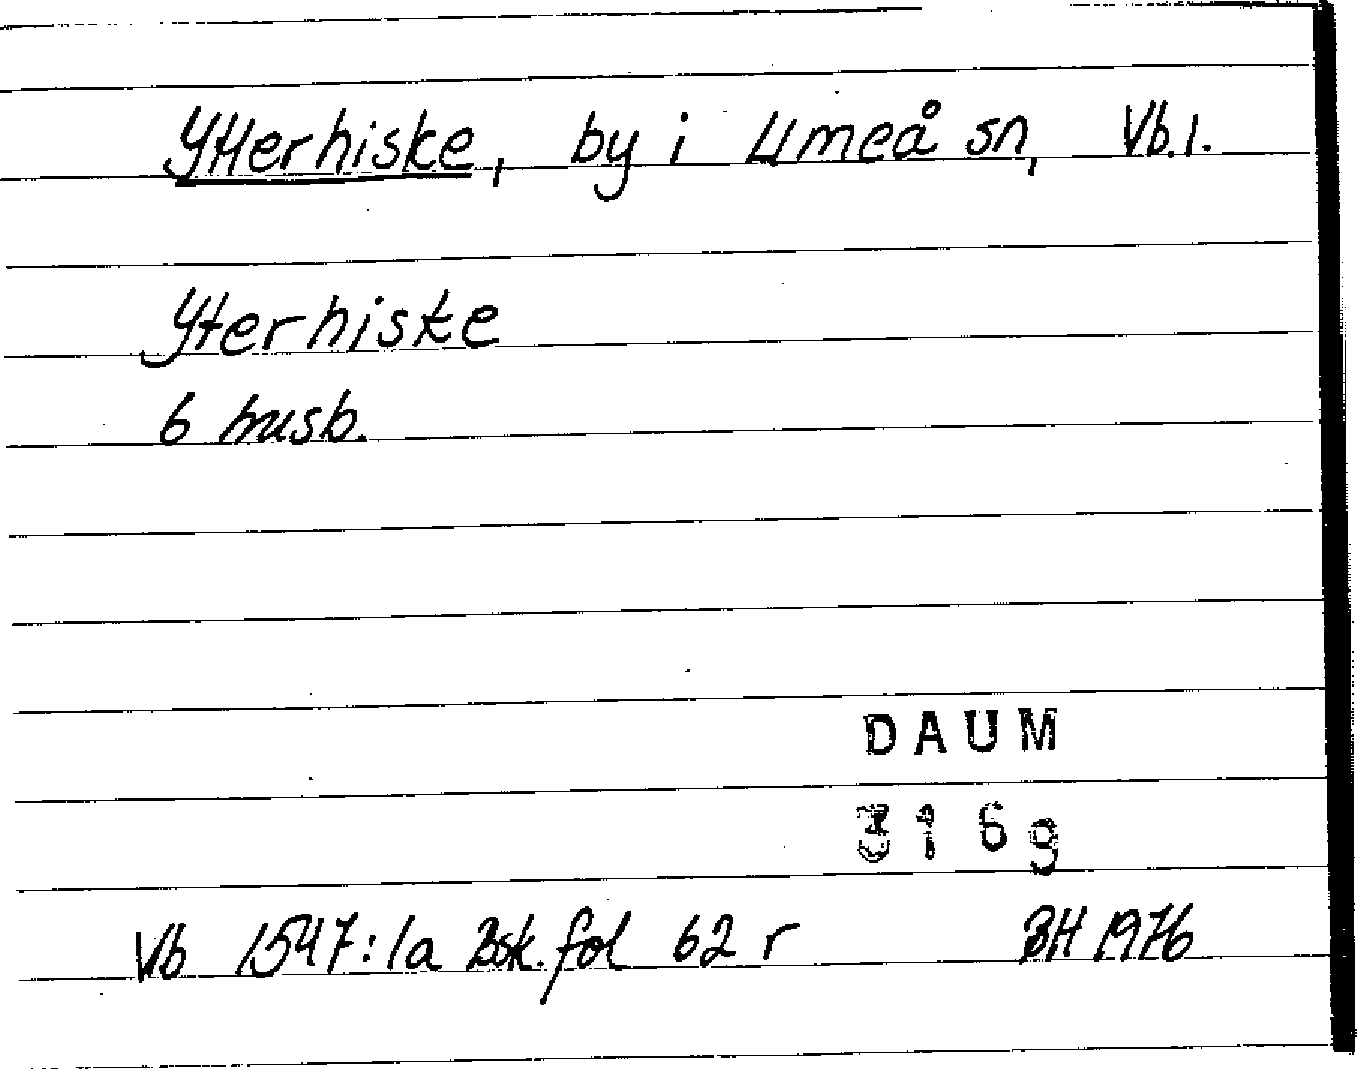 Ytterhiske, by i Umeå sn, Vb.l.
Yterhiske
6 husb.
DAUM
3169
Vb 1547:1a Bsk. fol 62 r BH 1976